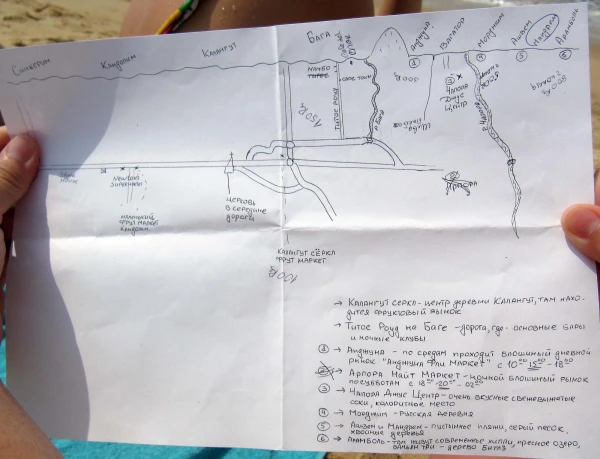 Синкерим Кандолим Калангут Бага Анджуна Вагатор Морджим Ашвем Мандрем Арамболь
Мамбо
Титос
Титос Роуд
150 Rs
800 Rs
Река
Чапора
Джус
Центр
③
①
④
⑤
⑥
②
Арпора
Newton's
Supermarket
маленький
фрут маркет
Кандолим
церковь
в середине
дороги
Калангут сёркл
фрут маркет
100 Rs
→ Калангут серкл - центр деревни Калангут, там нахо-
дится фруктовый рынок
→ Титос Роуд на Баге - дорога, где основные бары
и ночные клубы
① → Анджуна - по средам проходит блошиный дневной
рынок "Анджуна Фли Маркет" с 10⁰⁰ 15⁰⁰ - 18⁰⁰
② → Арпора Найт Маркет - ночной блошиный рынок
по субботам с 18⁰⁰ 20⁰⁰ - 02⁰⁰
③ → Чапора Джус Центр - очень вкусные свежевыжатые
соки, колоритное место
④ → Морджим - русская деревня
⑤ → Ашвем и Мандрем - пустынные пляжи, серый песок,
хвойные деревья
⑥ → Арамболь - там живут современные хиппи, пресное озеро,
баньян три - дерево Битлз